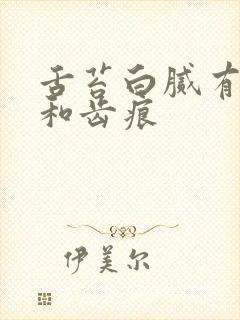 舌苔白腻有
和齿痕
伊美尔